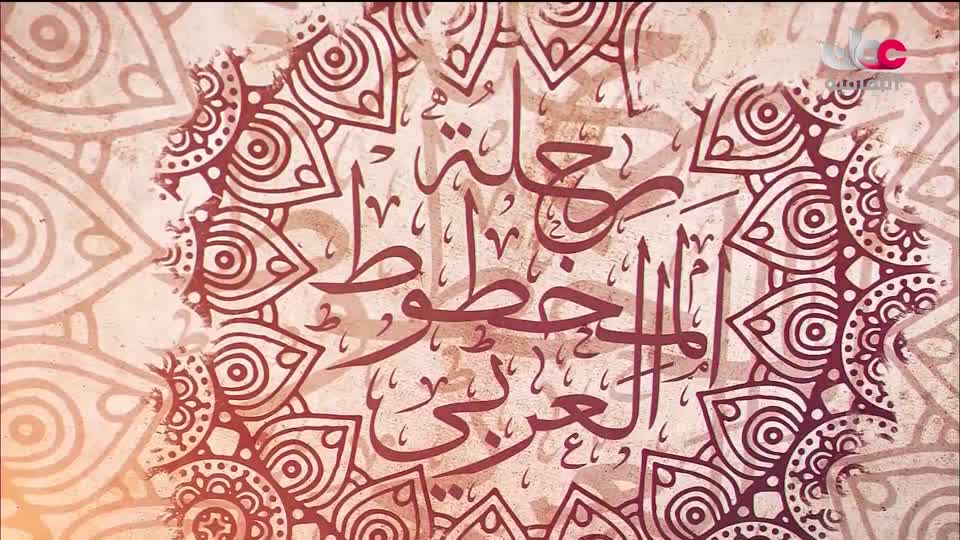 عمان
الثقافية
رحلة
المخطوط
العربي